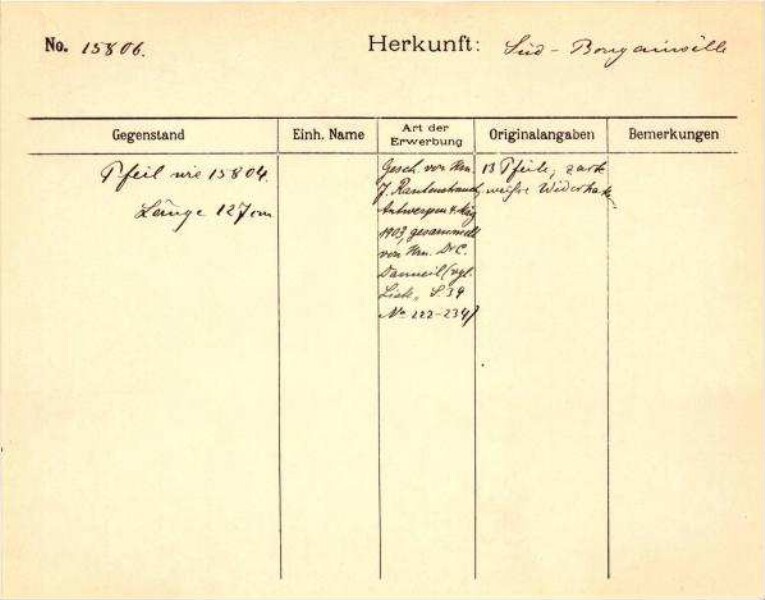 No. 15806.
Herkunft: Süd-Bougainville
Gegenstand
Einh. Name
Art der Erwerbung
Originalangaben
Bemerkungen
Pfeil wie 15804.
Länge 127 cm
Gesch. von Hrn.
J. Rautenstrauch,
Antwerpen
1903, gesammelt
von Hrn. Dr. C.
Danneil (vgl.
Liste, S. 39
No 222-234)
13 Pfeile, zark
weiße Widerhak.